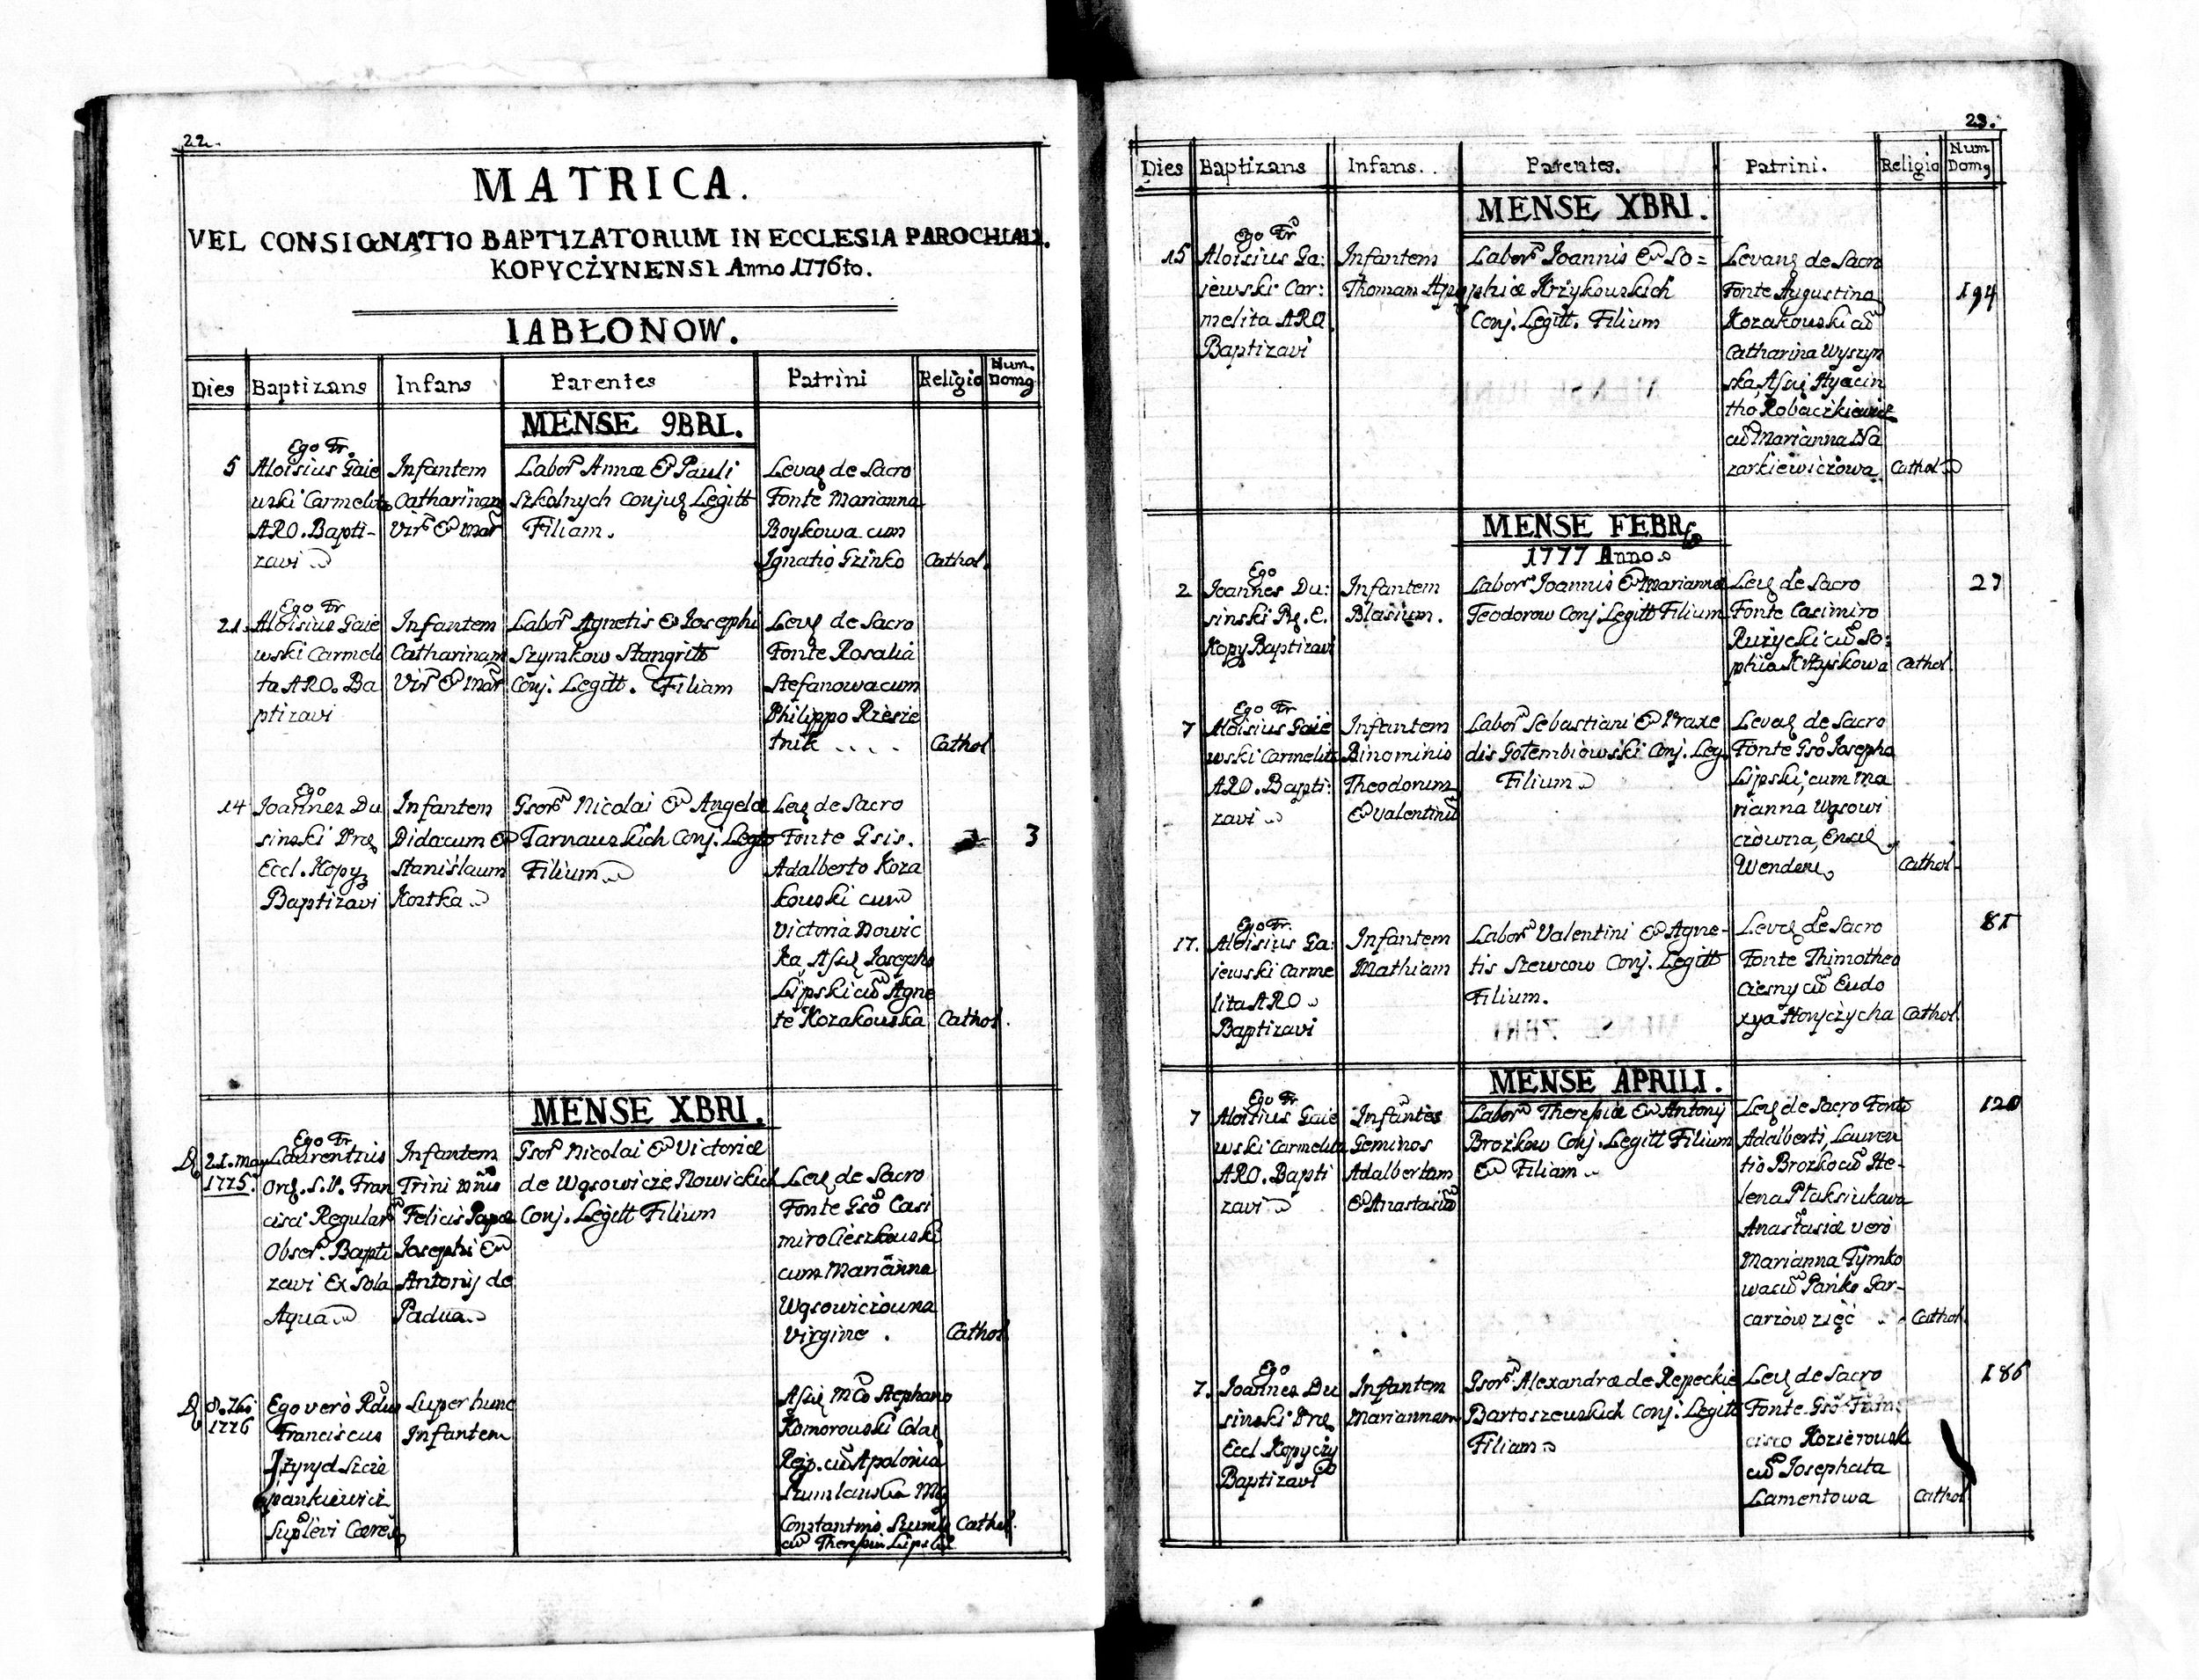 22.
MATRICA.
VEL CONSIGNATIO BAPTIZATORUM IN ECCLESIA PAROCHIALI.
KOPYCŻYNENSI Anno 1776to.
IABŁONOW.
Dies Baptizans Infans Parentes Patrini Religio Num. Domg
MENSE 9BRI.
5
Ego Fr.
Aloisius Gaie
wski Carmelita
ARO. Bapti-
zavi
Infantem
Catharinam
Vir. & Mar
Labor Annæ & Pauli
Szkolnych Conjug Legitt
Filiam.
Levag de Sacro
Fonte Marianna
Boykowa cum
Ignatio Grinko
Cathol.
21.
Ego Fr
Aloisius Gaie
wski Carmeli
ta ARO. Ba
ptizavi
Infantem
Catharinam
Vir & Mar
Labor Agnetis & Iosephi
Szymkow Stangritt
Conj. Legitt. Filiam
Levg de Sacro
Fonte Rosalia
Stefanowa cum
Philippo Rzesze
tnik . . . .
Cathol
14
Ego
Joannes Du
sinski Præ
Eccl. Kopy
Baptizavi
Infantem
Didacum &
Stanislaum
Kostka
Gsor Nicolai & Angelæ
Tarnawskich Conj. Legit
Filium
Levg de Sacro
Fonte Gsis.
Adalberto Koza
kowski cum
Victoria Nowic
ka, Assig Iosepho
Lipski cu Agne
te Kozakowska
Cathol.
3
MENSE XBRI.
D 21. May
1775.
Ego Fr.
Laurentius
Ord. S. P. Fran
cisci Regular
Obser. Bapti
zavi Ex Sola
Aqua
Infantem
Trini nois
Felicis Papæ
Iosephi &
Antonij de
Padua
Gsor Nicolai & Victoriæ
de Wąsowicze Nowickich
Conj. Legitt Filium
Levg de Sacro
Fonte Gso Casi
miro Cieszkowski
cum Marianna
Wąsowiczowna
Virgine .
Cathol
D 8. Xbr
1776
Ego vero Rdus
Franciscus
Szcze
pankiewicz
Suplevi Cæreg
Super hunc
Infantem
Assig Mco Stephano
Komorowski
cu Apolonia
Szumlanska Mg
Constantino Szumlg
cu Theresia Lipska
Cathol.
23.
Dies Baptizans Infans. Parentes. Patrini. Religio Num Domg
MENSE XBRI.
15
Ego Fr
Aloisius Ga:
jewski Car:
melita ARO
Baptizavi
Infantem
Thomam Ap
Labor Joannis & So=
phiæ Krżykowskich
Conj. Legitt. Filium
Levang de Sacr
Fonte Augustino
Kozakowski cu
Catharina Wyszyn
ska, Assig Hyacin
tho Robaczkiewicz
cu Marianna Na
zarkiewiczowa
Cathol
194
MENSE FEBR
1777 Anno
2
Ego
Joannes Du:
sinski Pg. E.
Kopy Baptizavi
Infantem
Blasium.
Labor Joannis & Marianna
Teodorow Conj Legitt Filium
Levg de Sacro
Fonte Casimiro
Rużycki cu So:
phia Krżyskowa
Cathol.
27
7
Ego Fr
Aloisius Gaie
wski Carmelita
ARO. Bapti:
zavi
Infantem
Binominis
Theodorum
& Valentinu
Labor Sebastiani & Praxe
dis Gołembiowski Conj. Leg.
Filium
Levag de Sacro
Fonte Gso Iosepho
Lipski, cum Ma
rianna Wąsowi
czowna,
Cathol.
17.
Ego Fr.
Aloisius Ga:
jewski Carme
lita ARO
Baptizavi
Infantem
Mathiam
Labor Valentini & Agne-
tis Szewcow Conj. Legitt
Filium.
Levag de Sacro
Fonte Thimotheo
Czerny cu Eudo
xya Honyczycha
Cathol
81
MENSE APRILI.
7
Ego Fr
Aloisius Gaie
wski Carmelita
ARO. Bapti
zavi
Infantes
Geminos
Adalbertum
& Anastasia
Labor Theresiæ & Antonij
Brozkow Conj. Legitt Filium
& Filiam
Levg de Sacro Fonte
Adalberti, Lauren
tio Brozko cu He-
lena Ptaksiukowa
Anastasiæ vero
Marianna Tymko
wa cu Panko Gar-
carzow zięć
Cathol.
120
7.
Ego
Joannes Du
sinski Præ
Eccl Kopyczy
Baptizavi
Infantem
Mariannam
Gsor Alexandræ de Repeckie
Bartoszewskich Conj. Legitt
Filiam
Levg de Sacro
Fonte Gso Fran
cisco Kozierowsk
cu Josephata
Lamentowa
Cathol
186